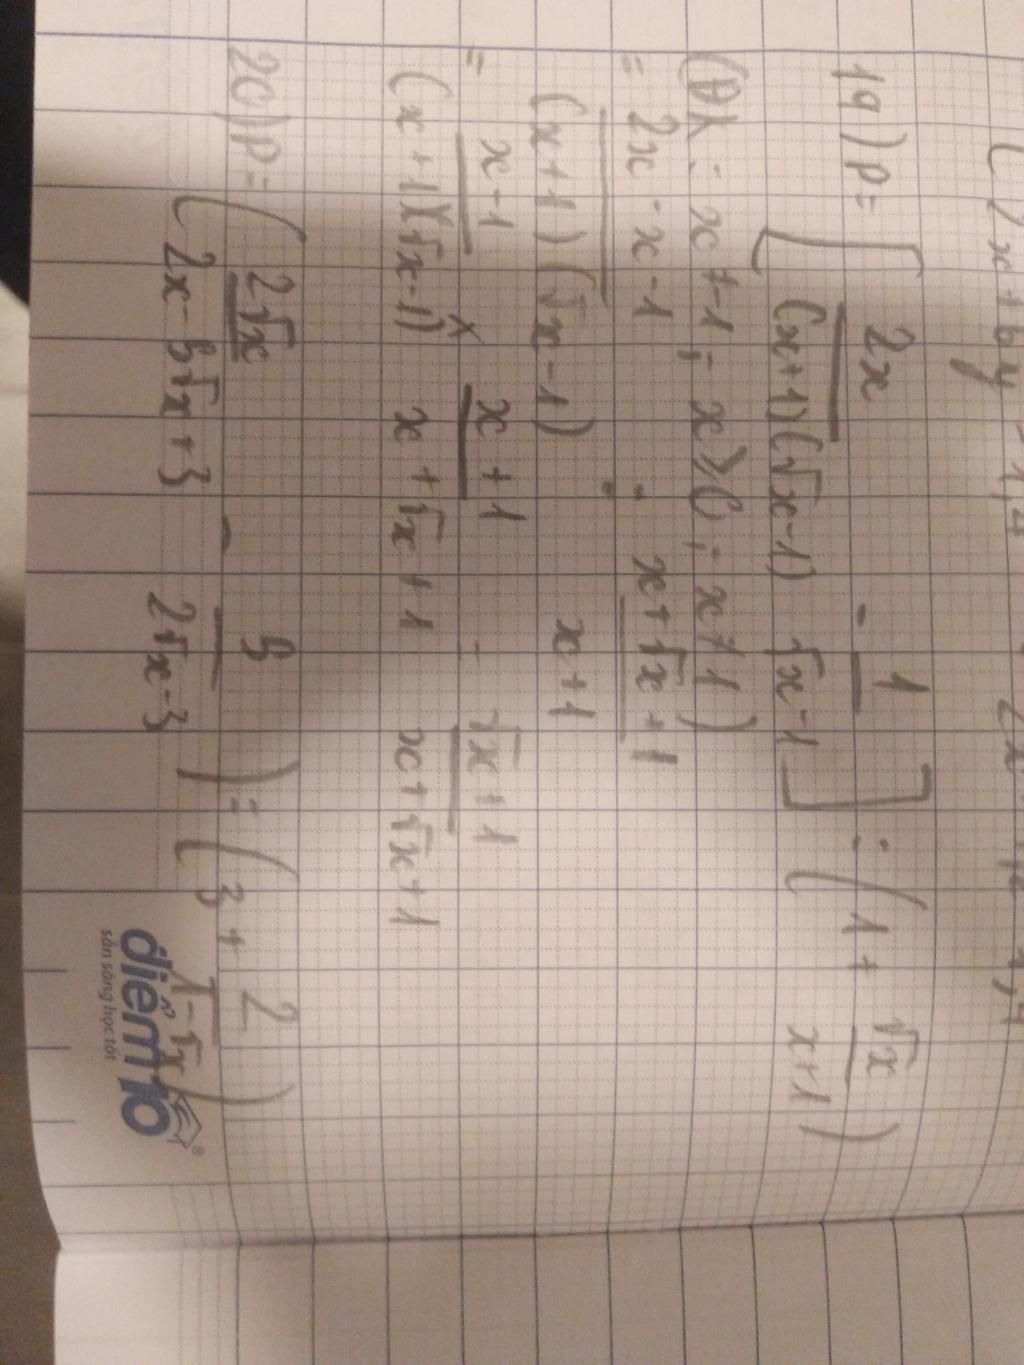 19) P = [ 2x / (x+1)(√x-1) - 1 / √x-1 ] : ( 1 + √x / x+1 )
(ĐK : x ≠ -1 ; x ≥ 0 ; x ≠ 1)
= 2x - x - 1 / (x+1)(√x-1) : x+√x+1 / x+1
= x-1 / (x+1)(√x-1) × x+1 / x+√x+1 = √x+1 / x+√x+1
20) P = ( 2√x / 2x-5√x+3 - 5 / 2√x-3 ) : ( 3 + 2 / 1-√x )
điểm 10
sẵn sàng học tốt